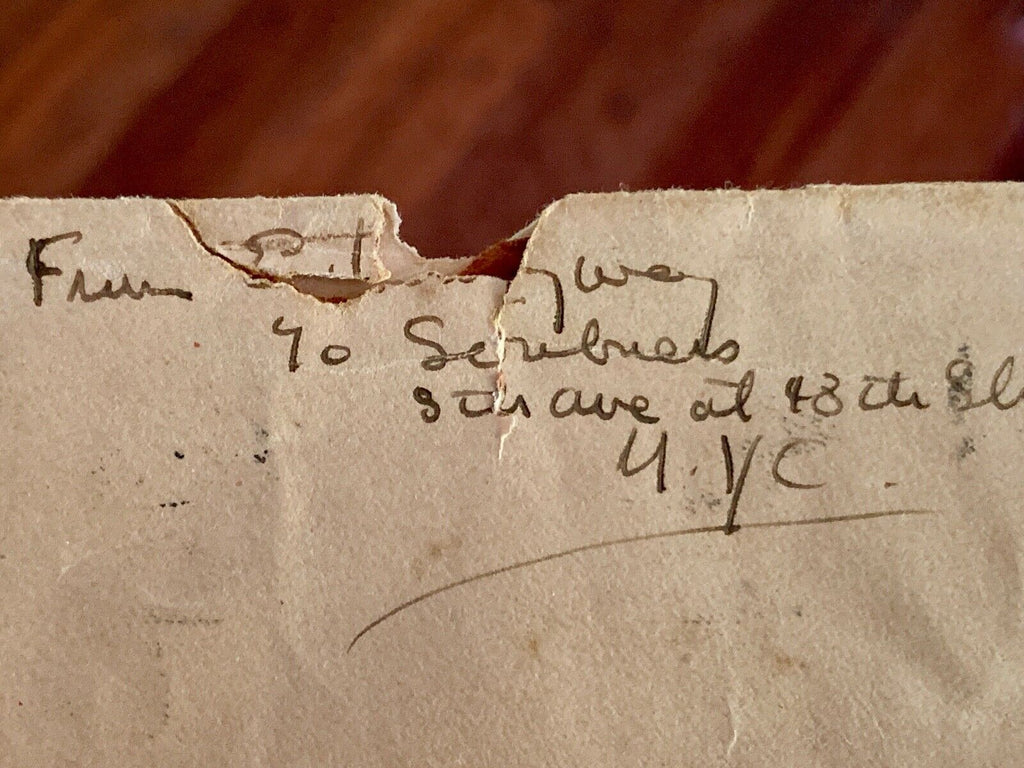 From gway
To Scribners
5th ave at 48th St
N.Y.C.